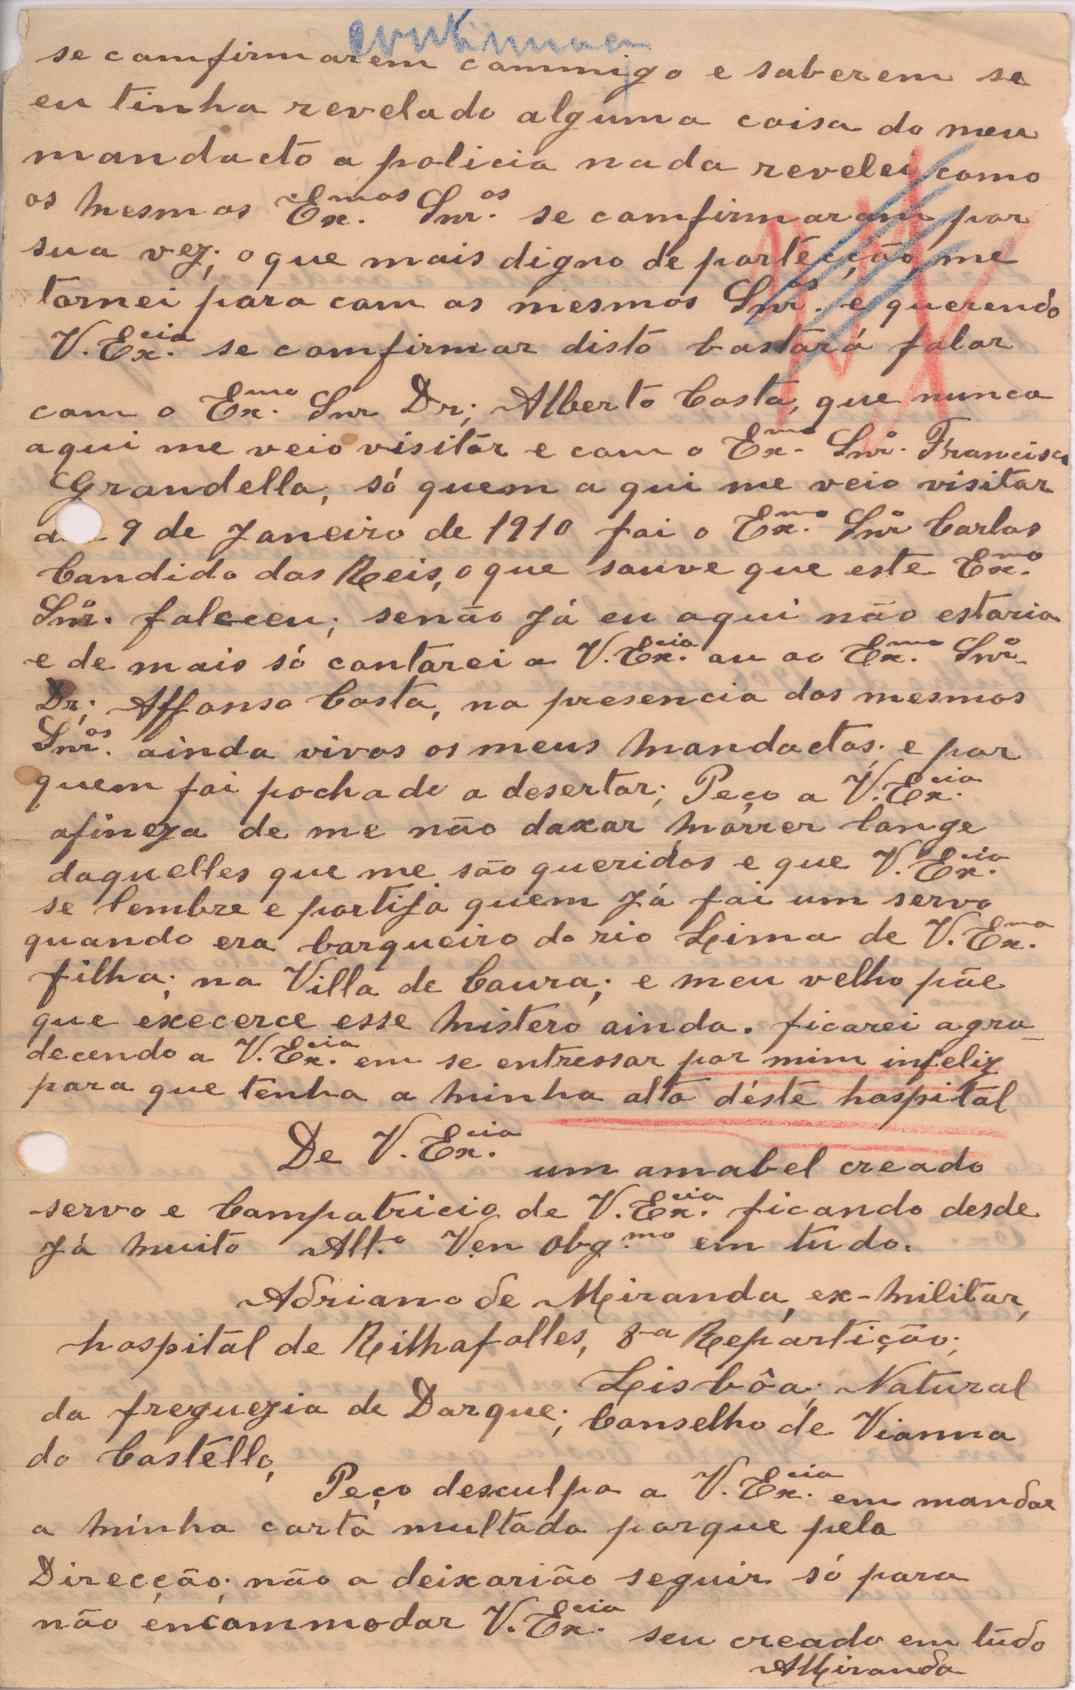 continuação
se comfirmarem commigo e saberem se
eu tinha revelado alguma coisa do meu
mandacto a policia nada revelei como
os mesmos Ex.mos Snr.os se comfirmaram por
sua vez; o que mais digno de portecção me
tornei para com os mesmos Snr.s e querendo
V. Ex.cia se comfirmar disto bastará falar
com o Ex.mo Snr Dr; Alberto Costa, que nunca
aqui me veio visitár e com o Ex.mo Snr.o Francisco
Grandella, só quem aqui me veio visitar
a 9 de Janeiro de 1910 foi o Ex.mo Snr.o Carlos
Candido dos Reis, o que souve que este Ex.mo
Snr.o faleceu; senão Já eu aqui não estaria
e de mais só contarei a V. Ex.cia ou ao Ex.mo Snr.o
Dr; Affonso Costa, na presencia dos mesmos
Snr.os ainda vivos os meus mandactos; e por
quem foi pochado a desertar; Peço a V. Ex.cia
afineza de me não daxar morrer longe
daquelles que me são queridos e que V. Ex.cia
se lembre e portija quem Já foi um servo
quando era barqueiro do rio Lima de V. Ex.ma
filha; na Villa de Caura; e meu velho pãe
que execerce esse mistero ainda. ficarei agra-
decendo a V. Ex.cia em se entressar por mim infeliz
para que tenha a minha alta déste hospital
De V. Ex.cia um amabel creado
servo e Compatricio de V. Ex.cia ficando desde
Já muito Att.o Ven Obg.mo em tudo.
Adriano de Miranda, ex-militar,
hospital de Rilhafolles, 8a Repartição;
Lisbôa; Natural
da freguezia de Darque; Conselho de Vianna
do Castello,
Peço desculpa a V. Ex.cia em mandar
a minha carta multada porque pela
Direcção; não a deixarião seguir só para
não encommodar V. Ex.cia seu creado em tudo
AMiranda